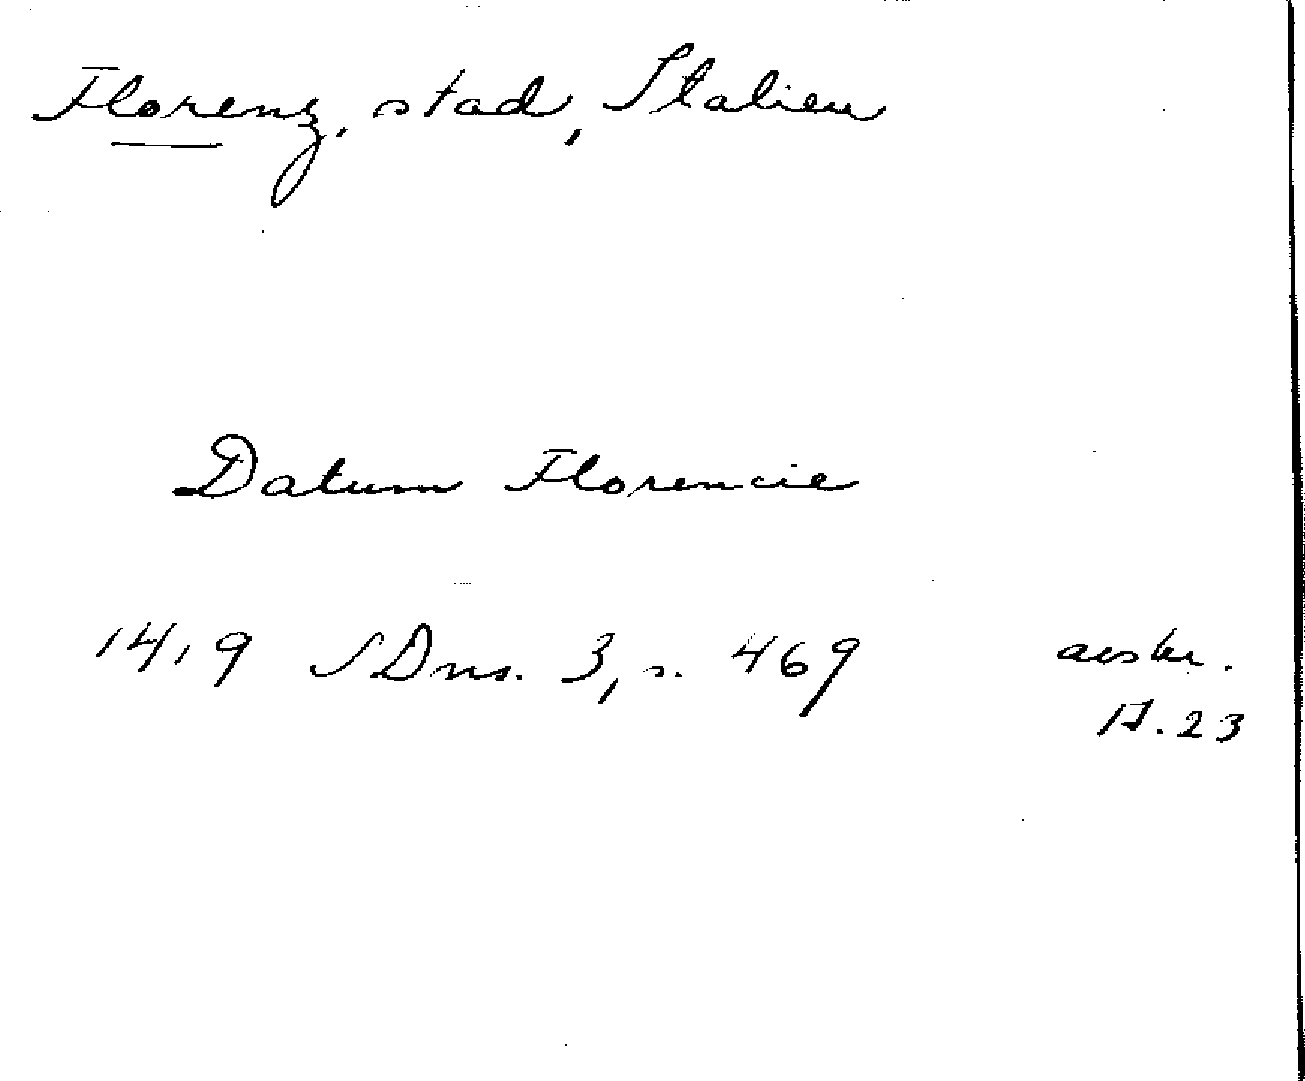 Florenz, stad, Italien
Datum Florencie
1419 SDns. 3, s. 469 avskr.
A. 23